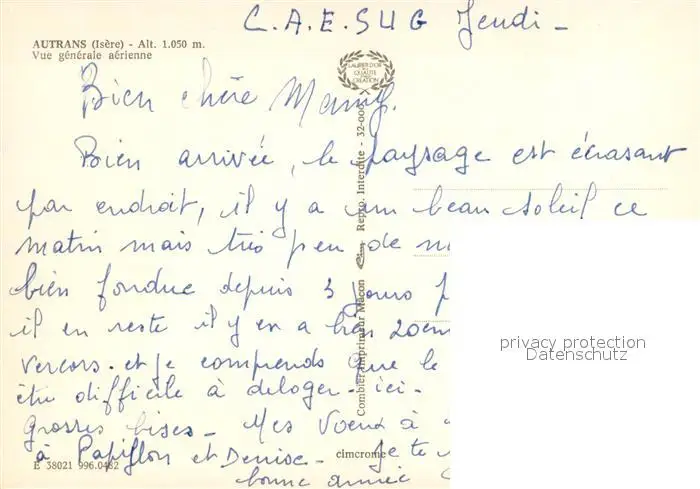 C.A.E. SUG Jeudi -
AUTRANS (Isère) - Alt. 1.050 m.
Vue générale aérienne
LAURIER D'OR
DE
QUALITÉ
CRÉATION
Bien chère Mamy.
Bien arrivée, le paysage est écrasant
par endroit, il y a un beau soleil ce
matin mais très peu de
bien fondue depuis 3 jours
il en reste il y en a bien 20cm
Vercors. et je comprends que le
être difficile à deloger. ici.
Grosses bises - Mes Voeux à
à Papillon et Denise - Je te
bonne année
E 38021 996.0482
cimcrome
Combier Imprimeur Macon Cim Repro. Interdite - 32-000
privacy protection
Datenschutz